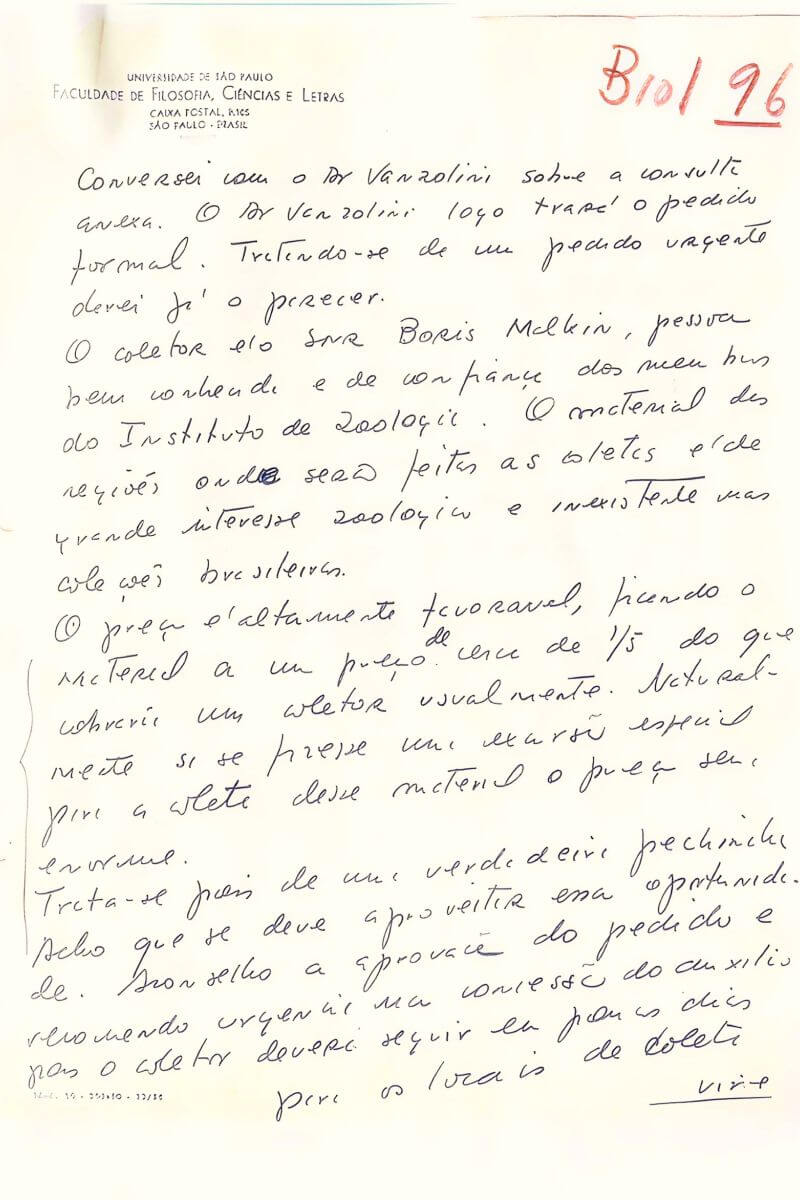 UNIVERSIDADE DE SÃO PAULO
FACULDADE DE FILOSOFIA, CIÊNCIAS E LETRAS
CAIXA POSTAL, 8105
SÃO PAULO - BRASIL
Biol 96
Conversei com o Dr Vanzolini sobre a consulta
anexa. O Dr Vanzolini logo trará o pedido
formal. Tratando-se de um pedido urgente
darei já o parecer.
O coletor é o Snr Boris Malkin, pessoa
bem conhecida e de confiança dos membros
do Instituto de Zoologia. O material das
regiões onde serão feitas as coletas é de
grande interesse zoologico e inexistente nas
coleções brasileiras.
O preço é altamente favoravel, ficando o
material a um preço de cerca de 1/5 do que
cobraria um coletor usualmente. Natural-
mente si se fizesse uma excursão especial
para a coleta desse material o preço seria
enorme.
Trata-se pois de uma verdadeira pechincha
Acho que se deve aproveitar essa oportunida-
de. Aconselho a aprovação do pedido e
recomendo urgencia na concessão do auxilio
pois o coletor deverá seguir em poucos dias
para os locais de coleta
vire